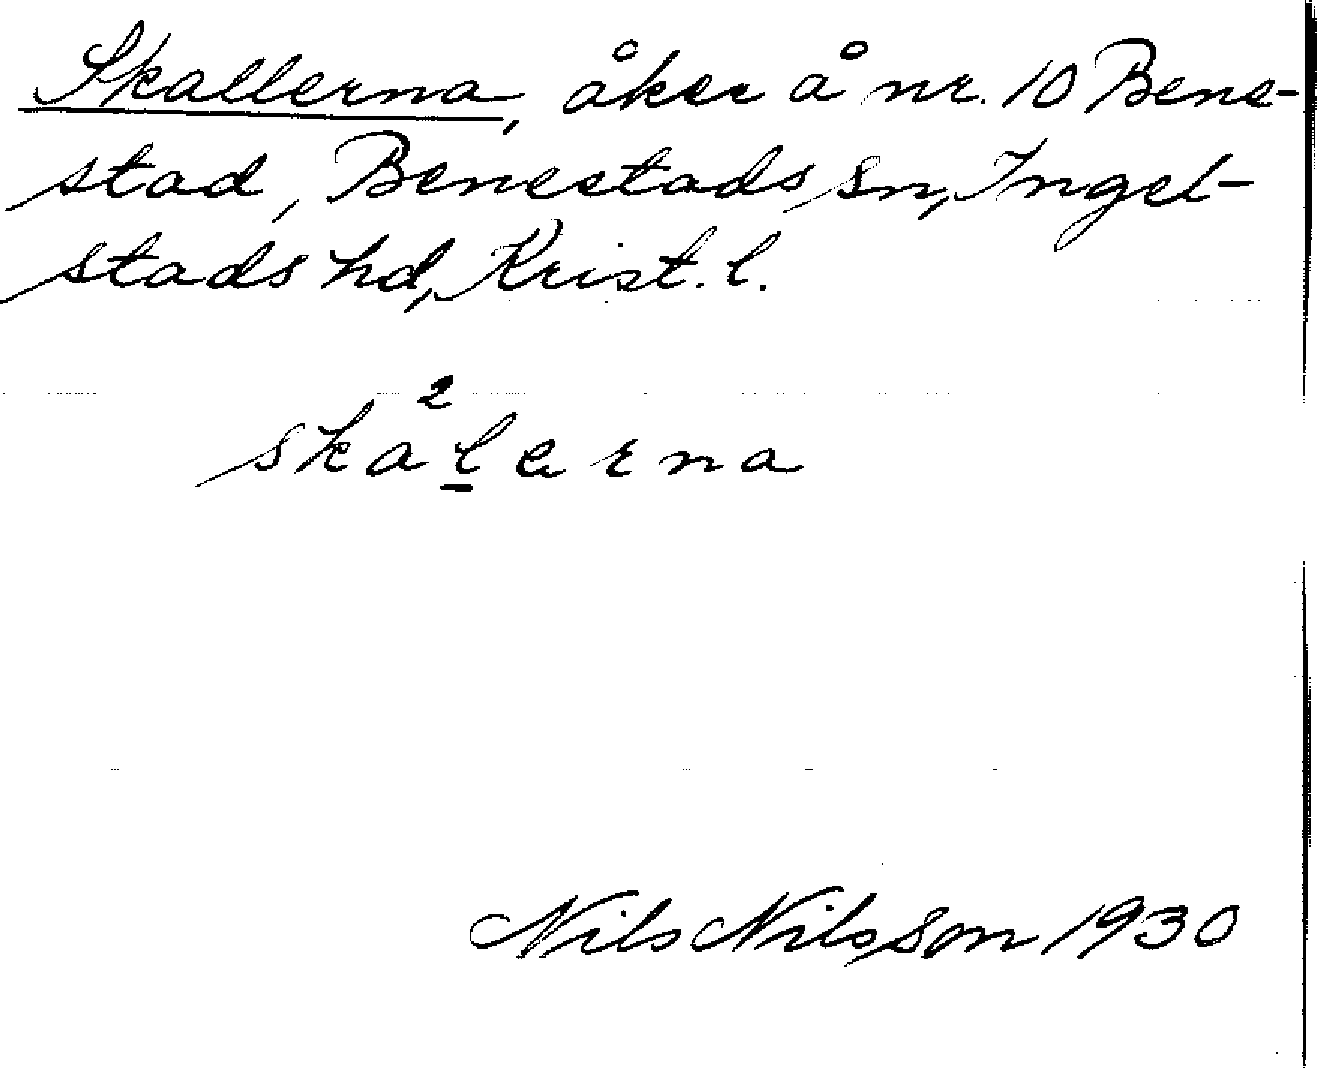 Skallerna, åker å nr. 10 Bene-
stad, Benestads sn, Ingel-
stads hd, Krist. l.
2
skalerna
Nils Nilsson 1930